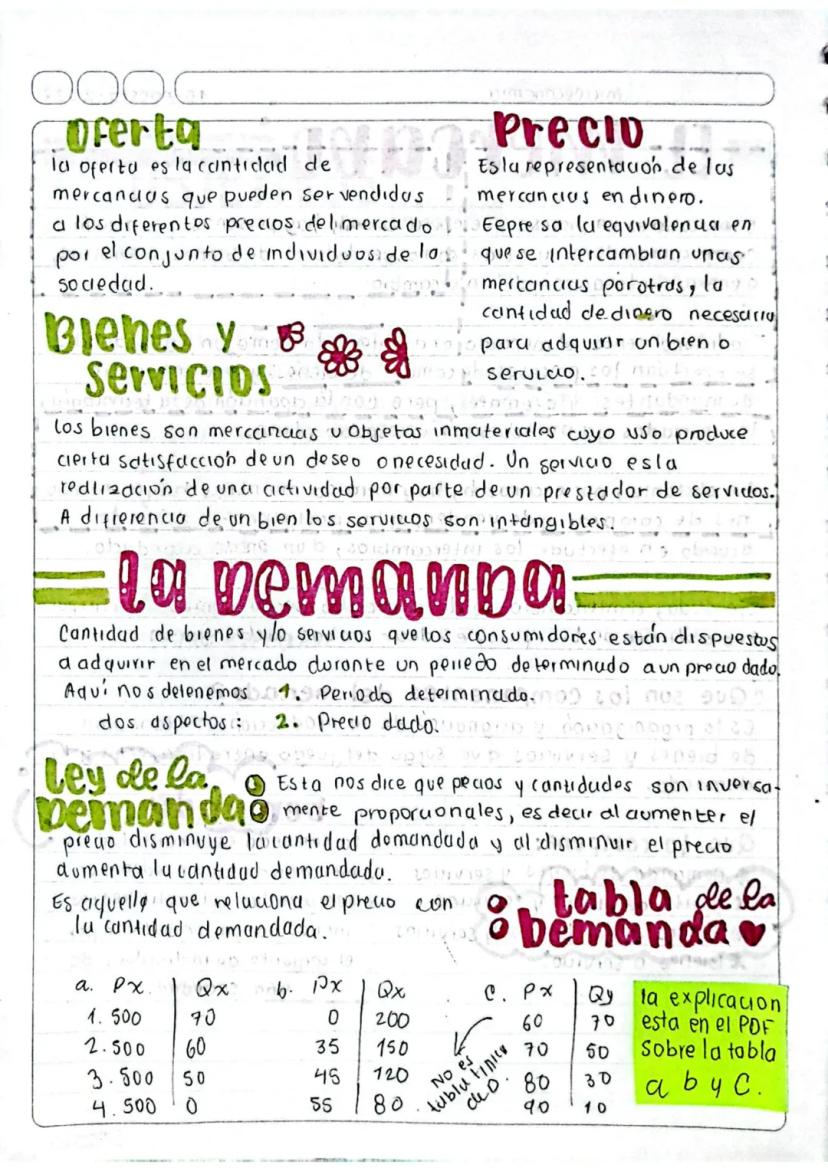 Oferta
la oferta es la cantidad de
mercancias que pueden ser vendidas
a los diferentos precios del mercado
por el conjunto de individuos de la
sociedad.
Precio
Es la representación de las
mercancias en dinero.
Eepresa la equivalencia en
que se intercambian unas
mercancias por otras, la
cantidad de dinero necesaria
para adquirir un bien o
servicio.
Bienes y
servicios
Los bienes son mercancias u Objetos inmateriales cuyo uso produce
cierta satisfacción de un deseo o necesidad. Un servicio es la
realización de una actividad por parte de un prestador de servicios.
A diferencia de un bien los servicios son intangibles.
la Demanda
Cantidad de bienes y/o servicios que los consumidores están dispuestos
a adquirir en el mercado durante un periedo determinado a un precio dado.
Aquí nos detenemos 1. Periodo determinado.
dos aspectos: 2. Precio dado.
ley de la
Demanda: Esta nos dice que pecios y cantidades son inversa-
mente proporcionales, es decir al aumenter el
precio disminuye la cantidad demandada y al disminuir el precio
aumenta la cantidad demandada.
Es aquella que relaciona el precio con
la cantidad demandada.
: tabla de la
Demanda
a. Px Qx
1. 500 70
2. 500 60
3. 500 50
4. 500 0
b. Px Qx
0 200
35 150
45 120
55 80
c. Px Qy
60 70
70 50
80 30
90 10
No es
tabla tipica
de D.
la explicacion
esta en el PDF
sobre la tabla
a b y C.